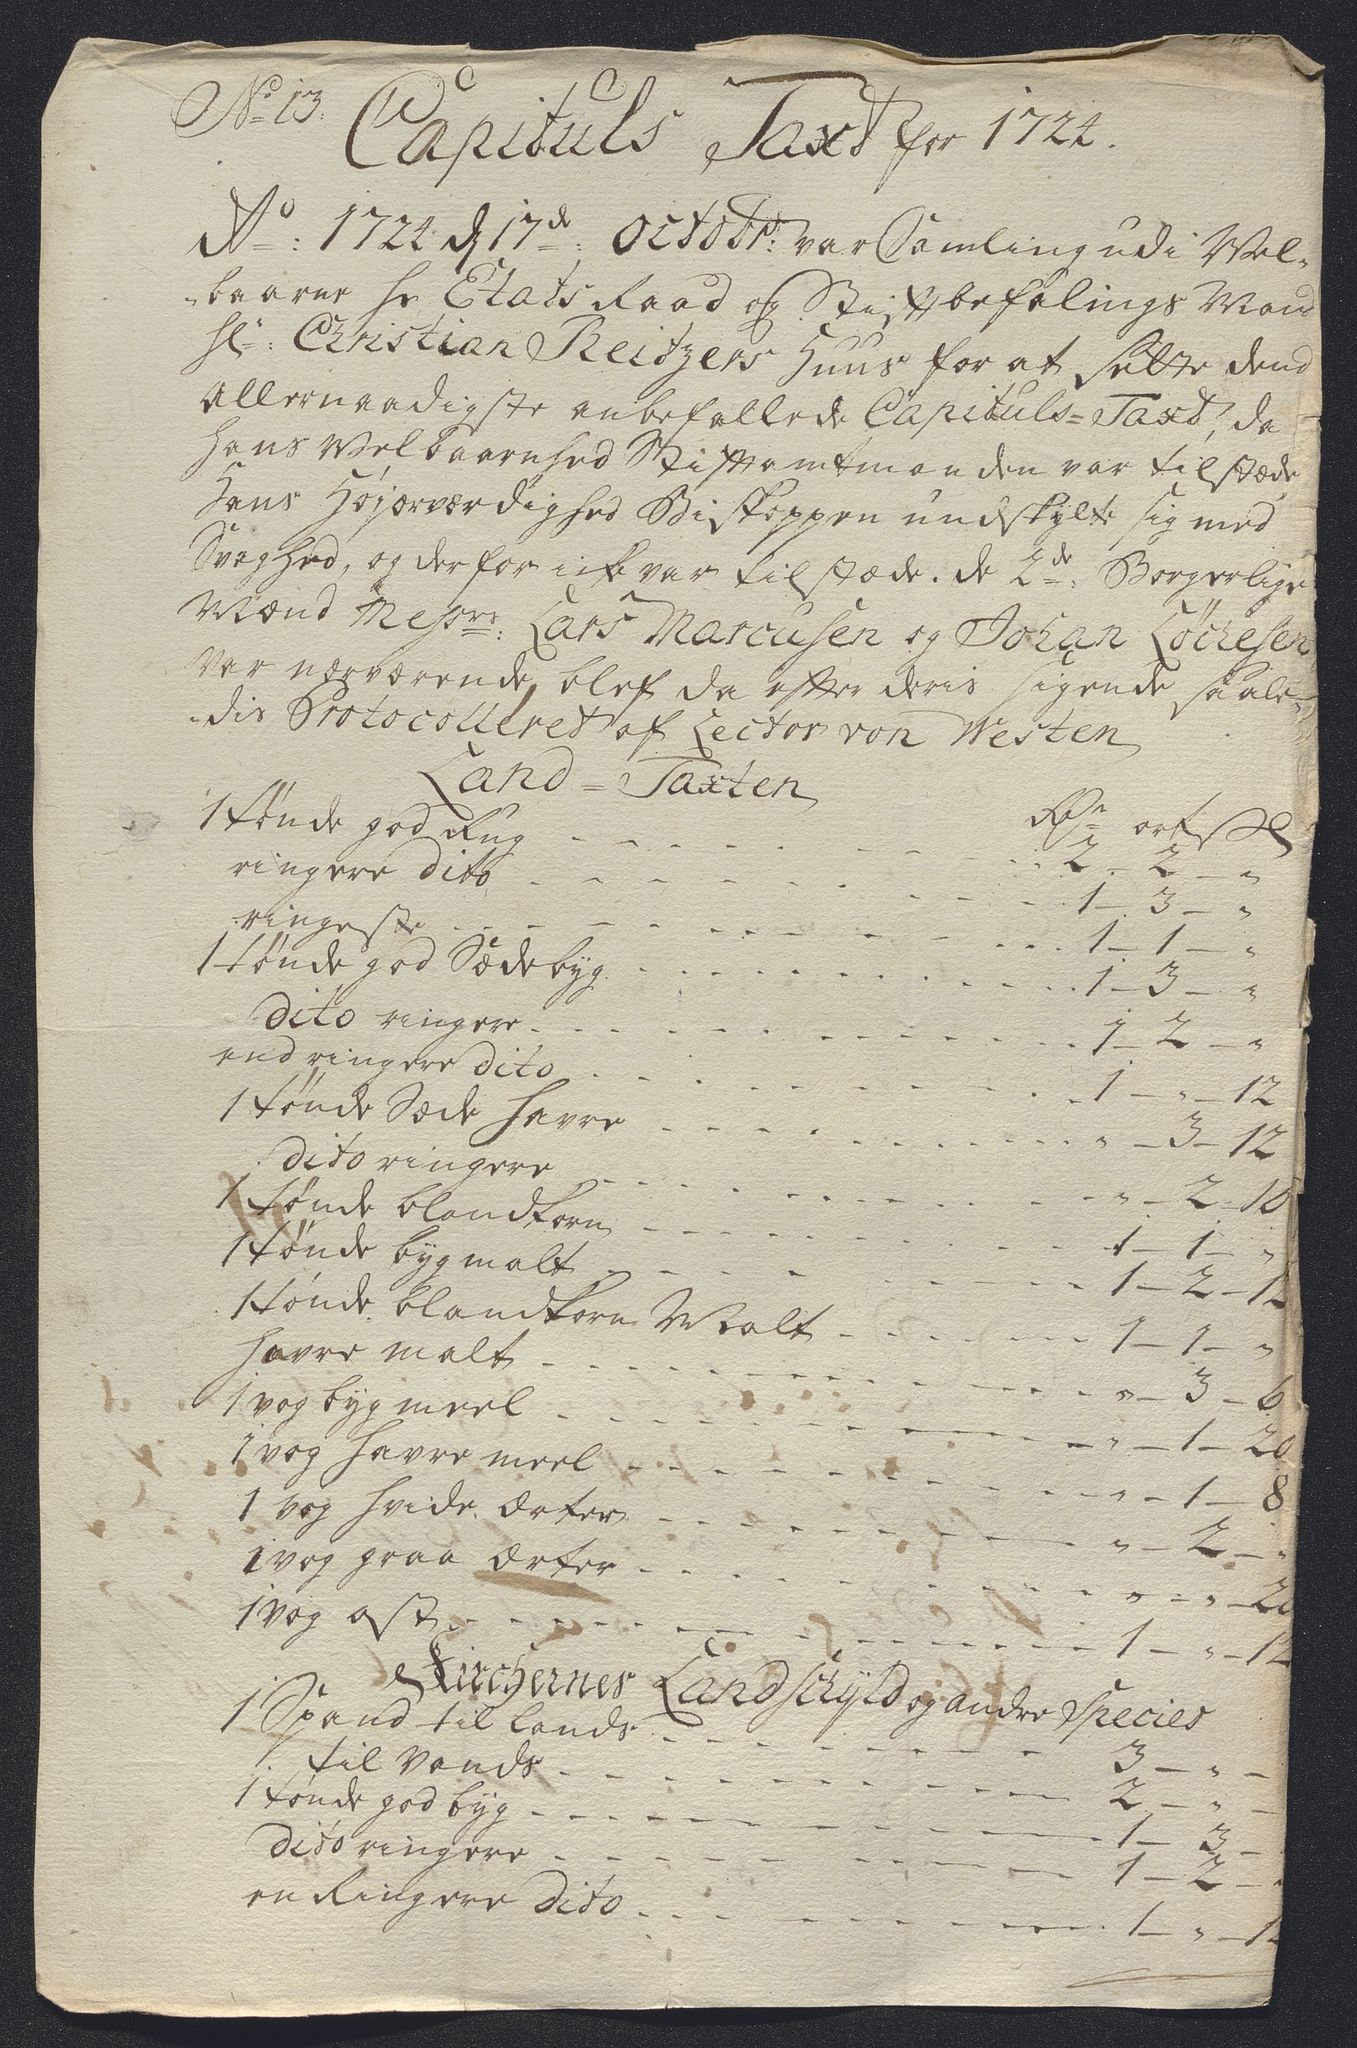 No 13.
Capituls Taxt for 1724.
Ao: 1724 d 17de: Octobr: var Samling udi Vel-
baarne hr Etats Raad og Stiftbefalings Mand
Hr: Christian Reitzers Huus for at sætte dend
allernaadigste anbefallede Capituls=Taxt, da
hans Velbaarnhed Stiftamtmanden var tilstæde
Hans Høyærværdighed Biskoppen undskylte sig med
Svaghed, og derfor icke var tilstæde. de 2de: Borgerlige
Mænd Messrs: Lars Marcusen og Johan Løchesen
var nærværende, blef da efter deris sigende saale-
dis Protocolleret af Lector von Westen
Land=Taxten
Rdr ort sk
1 tønde god Rug 2 - 2 - "
ringere dito 1 - 3 - "
ringeste 1 - 1 - "
1 tønde god Sædebyg 1 - 3 - "
dito ringere 1 - 2 - "
end ringere dito 1 - " - 12
1 tønde Sæde Havre " - 3 - 12
dito ringere " - 2 - 16
1 tønde blandkorn 1 - 1 - "
1 tønde byg malt 1 - 2 - 12
1 tønde blandkorn Malt 1 - 1 - "
havre malt " - 3 - 6
1 vog byg meel " - 1 - 20
1 vog havre meel " - 1 - 8
1 vog hvide ærter " - 2 - "
1 vog graa ærter " - " -
1 vog ost 1 - " - 12
Kirchernes Landschyld og andre Species
1 Spand til lands 3 - " -
til Vands 2 - " -
1 tønde god byg 1 - 3 -
dito ringere 1 - 2 - "
en Ringere dito 1 - " - 12